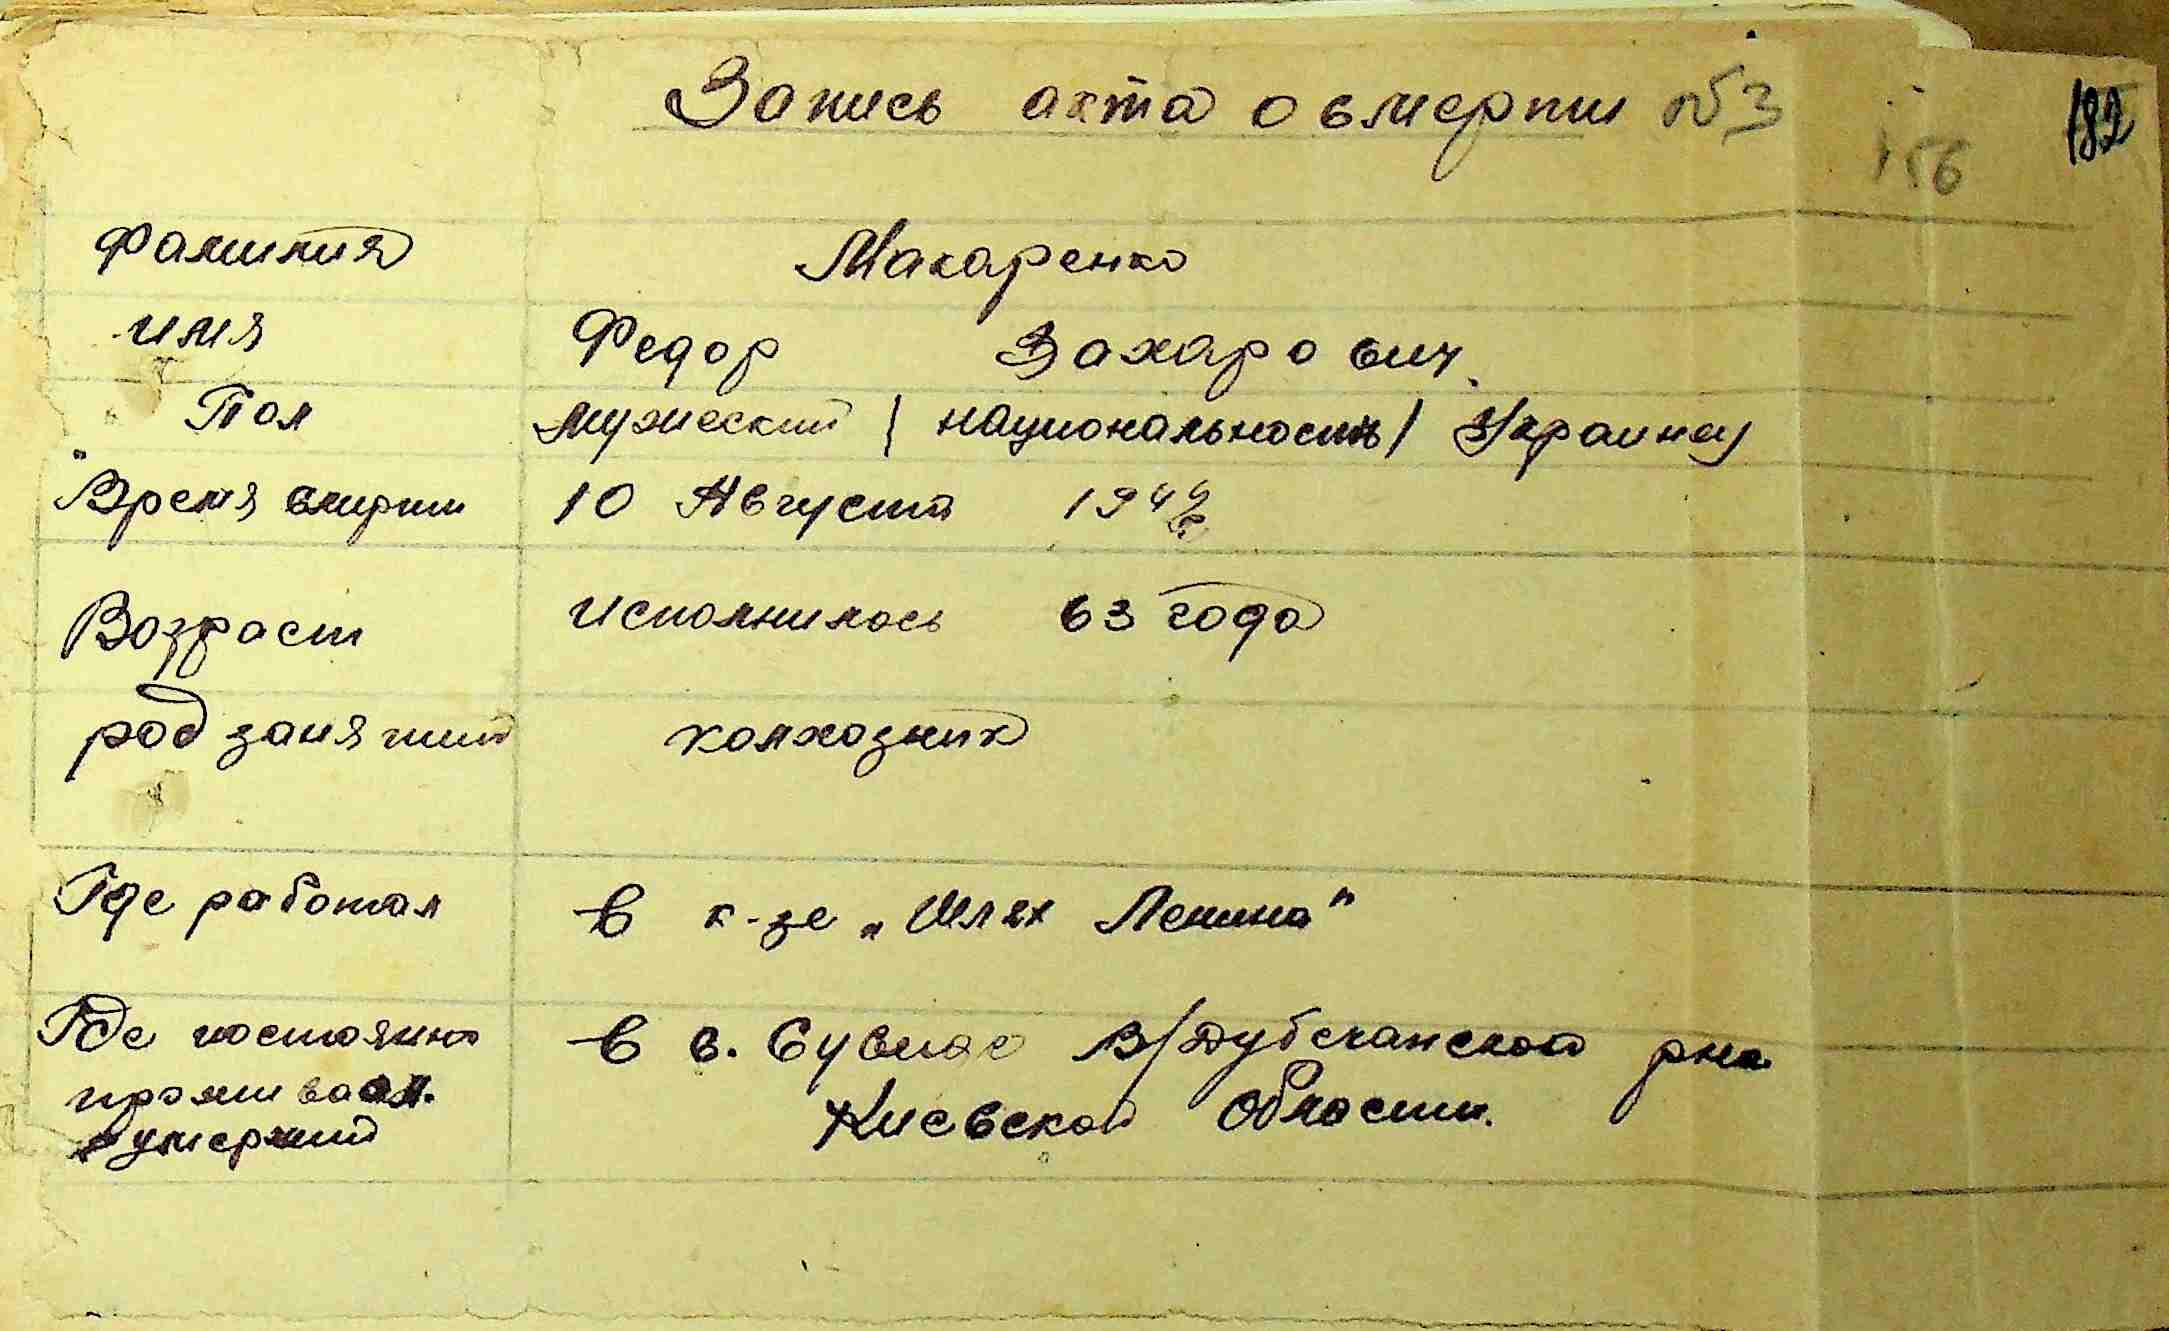 Запись акта о смерти №3
182
156
Фамилия Макаренко
имя Федор Захарович.
Пол мужеский / национальность / Украинец
Время смерти 10 Августа 194
Возраст исполнилось 63 года
род занятий колхозник
Где работал в к-зе „Шлях Ленина"
Где постоянно в с. Сувид В/Дубечанской рна
проживал Киевской Области.
умерший